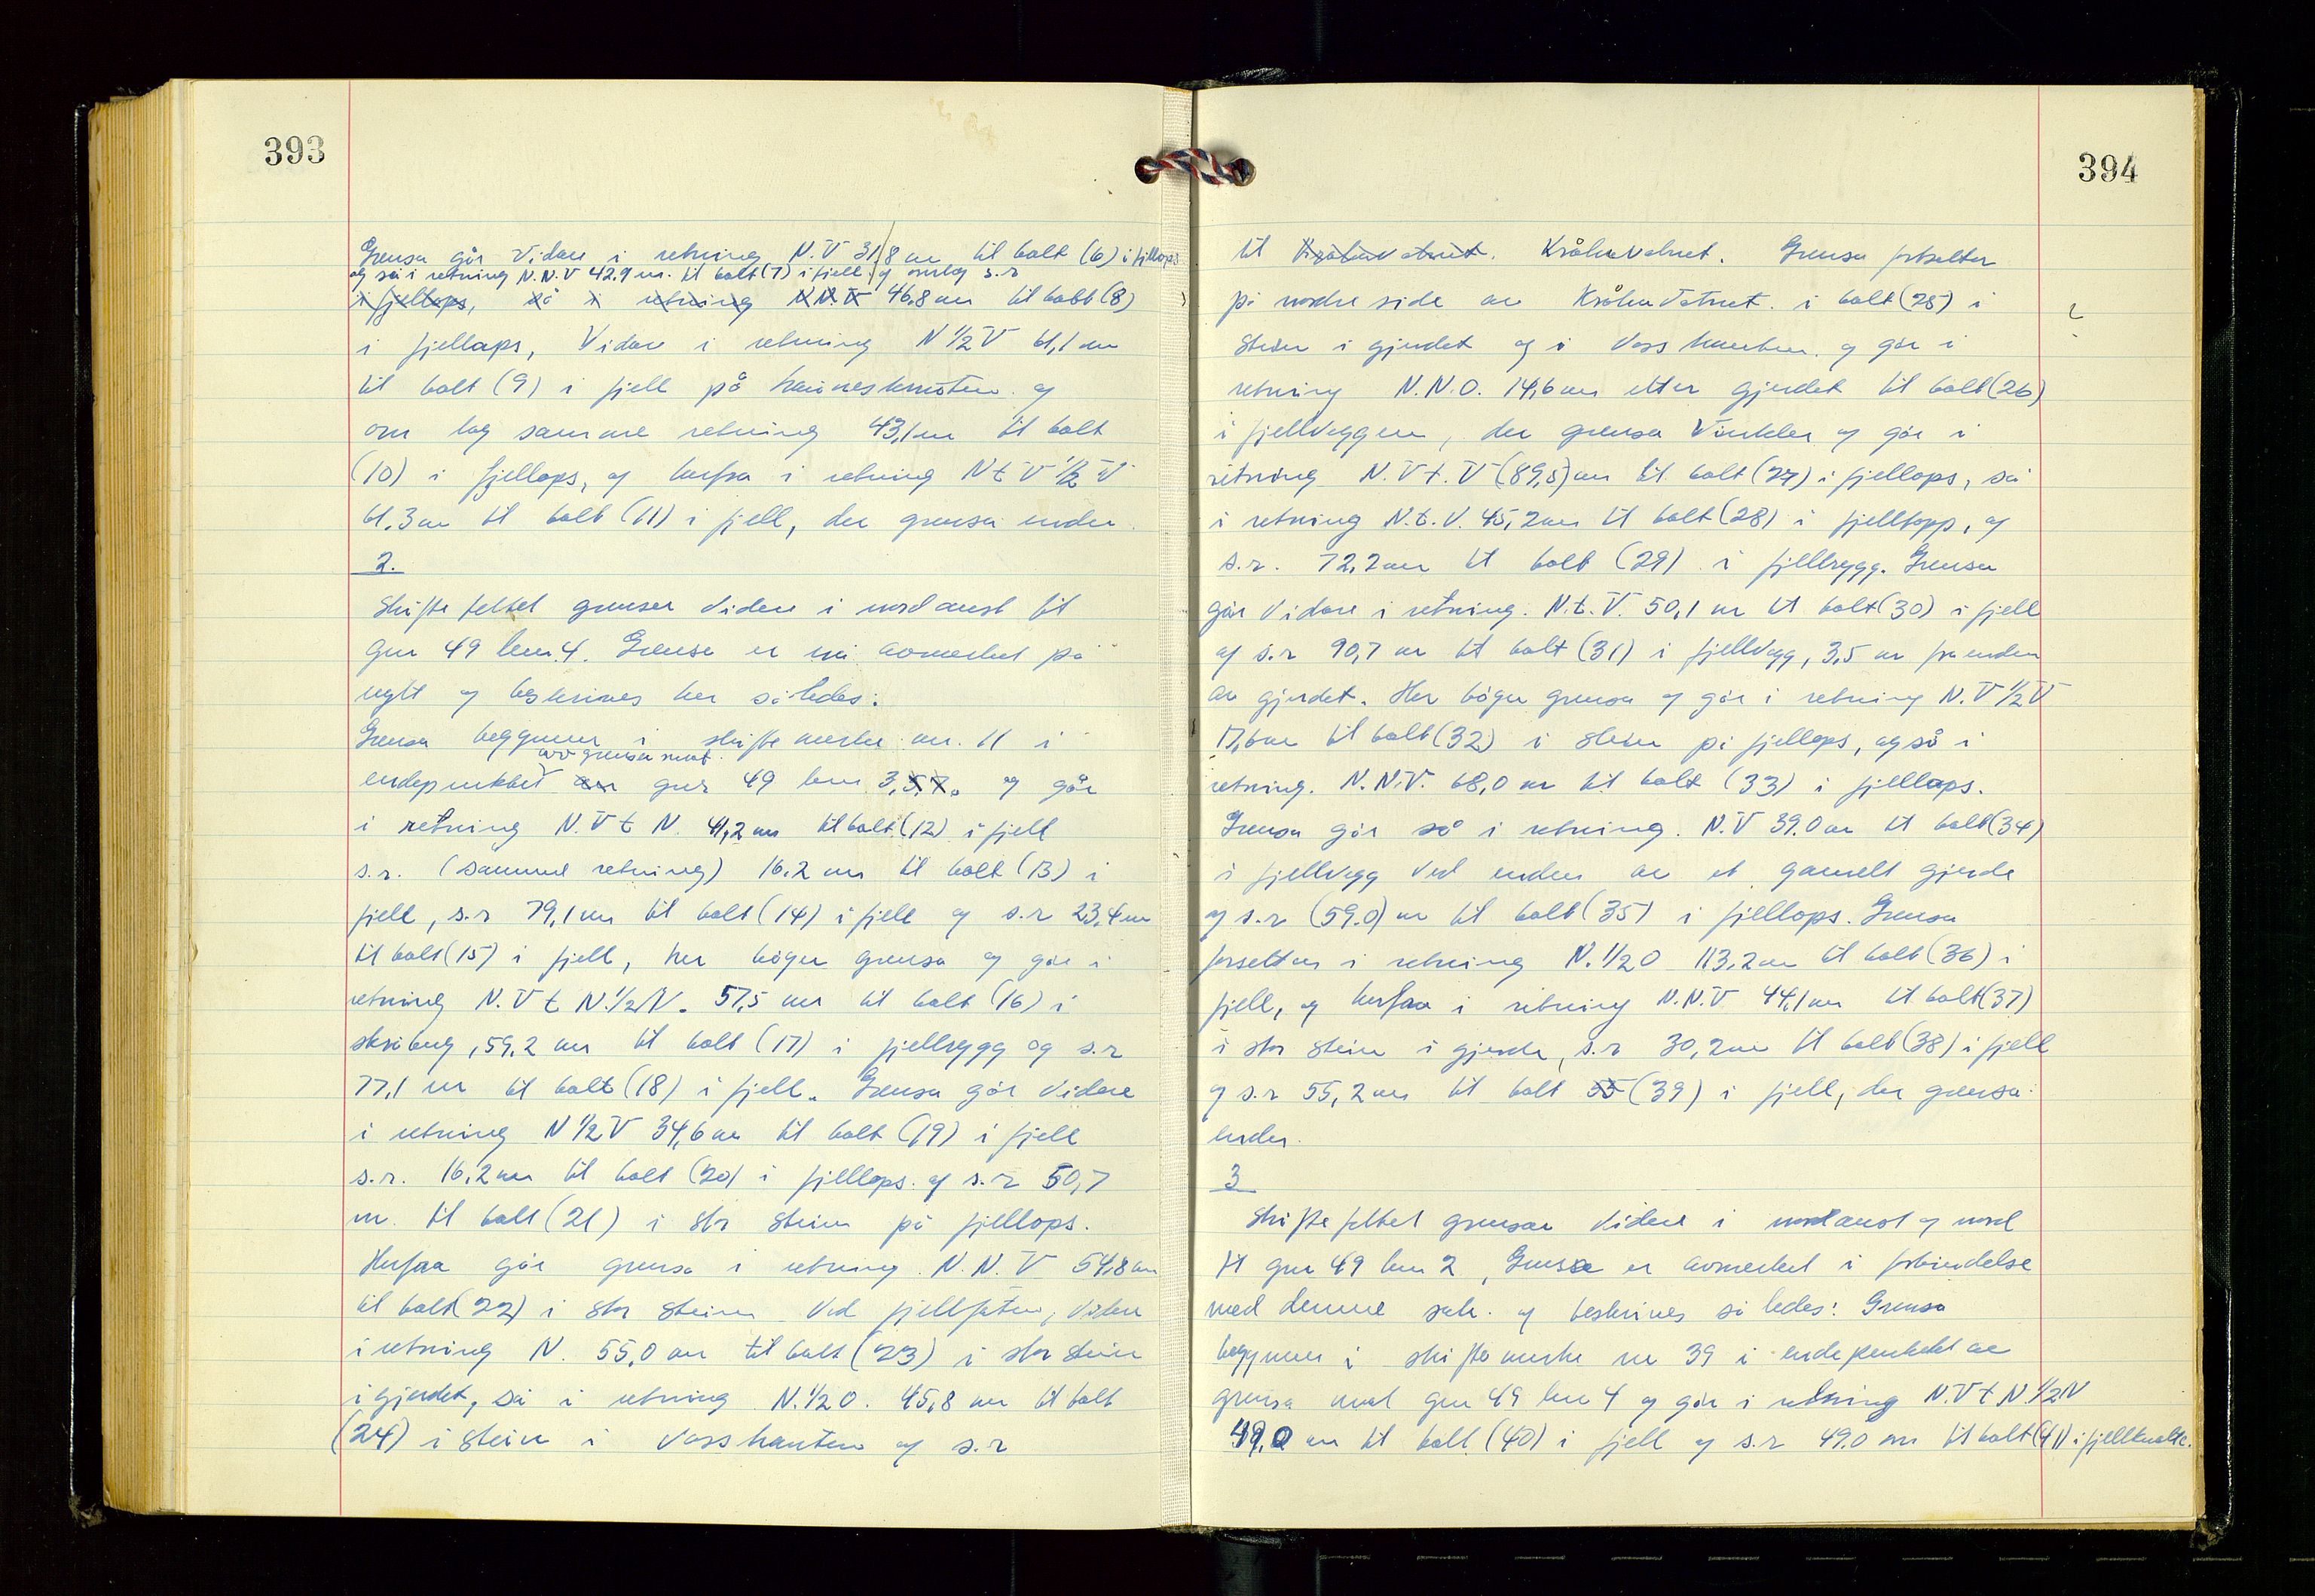 393
Grensa går vidare i retning N.V 31,8 m til bolt (6) i fjellaps
og så i retning N.N.V 42.9 m. til bolt (7) i fjell. og omlag s.r
i fjellaps, så i retning N.N.V 46,8 m til bolt (8)
i fjellaps, Vidare i retning N ½ V 61,1 m
til bolt (9) i fjell på og
om lag samme retning 43,1 m til bolt
(10) i fjellaps, og herfra i retning N t V ½ V
61.3 m til bolt (11) i fjell, der grensa ender.
2.
Skiftefeltet grenser videre i nordaust til
gnr 49 bnr. 4. Grensa er nå avmerket på
nytt og beskrives her således:
Grensa begynner i skiftemerke nr. 11 i
av grensa mot
endepunktet av gnr 49 bnr 3,5.7. og går
i retning N.V t N. 41,2 m til bolt (12) i fjell
s.r. (samme retning) 16.2 m til bolt (13) i
fjell, s.r 79,1 m til bolt (14) i fjell og s.r 23,4 m
til bolt (15) i fjell, her bøyer grensa og går i
retning N.V t N.½ N. 57,5 m til bolt (16) i
skråberg, 59.2 m til bolt (17) i fjellrygg og s.r
77,1 m til bolt (18) i fjell. Grensa går videre
i retning N ½ V 34,6 m til bolt (19) i fjell
s.r. 16.2 m til bolt (20) i fjellaps. og s.r 50,7
m. til bolt (21) i stor stein på fjellaps.
Herfra går grensa i retning. N.N.V 54,8 m
til bolt (22) i stor stein ved fjellfoten, videre
i retning N. 55,0 m til bolt (23) i stor stein
i gjerdet, så i retning N.½ O. 45,8 m til bolt
(24) i stein i vasskanten og s.r
394
til Kråkevatnet. Kråkevatnet. Grensa fortsetter
på nordre side av Kråkevatnet. i bolt (25) i
stein i gjerdet og i vasskanten. og går i
retning N.N.O. 14,6 m etter gjerdet til bolt (26)
i fjellveggen, der grensa vinkler og går i
retning N.V t. V (89,5) m til bolt (27) i fjellaps, så
i retning N.t.V. 45,2 m til bolt (28) i fjelltopp, og
s.r. 72,2 m til bolt (29) i fjellrygg. Grensa
går vidare i retning. N.t.V. 50,1 m til bolt (30) i fjell
og s.r 90,7 m til bolt (31) i fjellvegg, 3,5 m fra enden
av gjerdet. Her bøyer grensa og går i retning N.V ½ V
17,6 m til bolt (32) i stein på fjellaps, og så i
retning. N.N.V. 68,0 m til bolt (33) i fjellaps.
Grensa går så i retning. N.V 39.0 m til bolt (34)
i fjellvegg ved enden av et gamelt gjerde
og s.r (59.0) m til bolt (35) i fjellaps. Grensa
forsetter i retning N.½ O 113,2 m til bolt (36) i
fjell, og herfra i retning N.N.V 44,1 m til bolt (37)
i stor stein i gjerde, s.r 30,2 m til bolt (38) i fjell
og s.r 55,2 m til bolt 55 (39) i fjell, der grensa
ender.
3
Skiftefeltet grensar videre i nordaust og nord
til gnr 49 bnr 2, Grensa er avmerket i forbindelse
med denne sak. og beskrives således: Grensa
begynner i skiftemerke nr 39 i endepunktet av
grensa mot gnr 49 bnr 4 og går i retning N.V t N.½ N
49,0 m til bolt (40) i fjell og s.r 49.0 m til bolt (41) i fjellknatte.